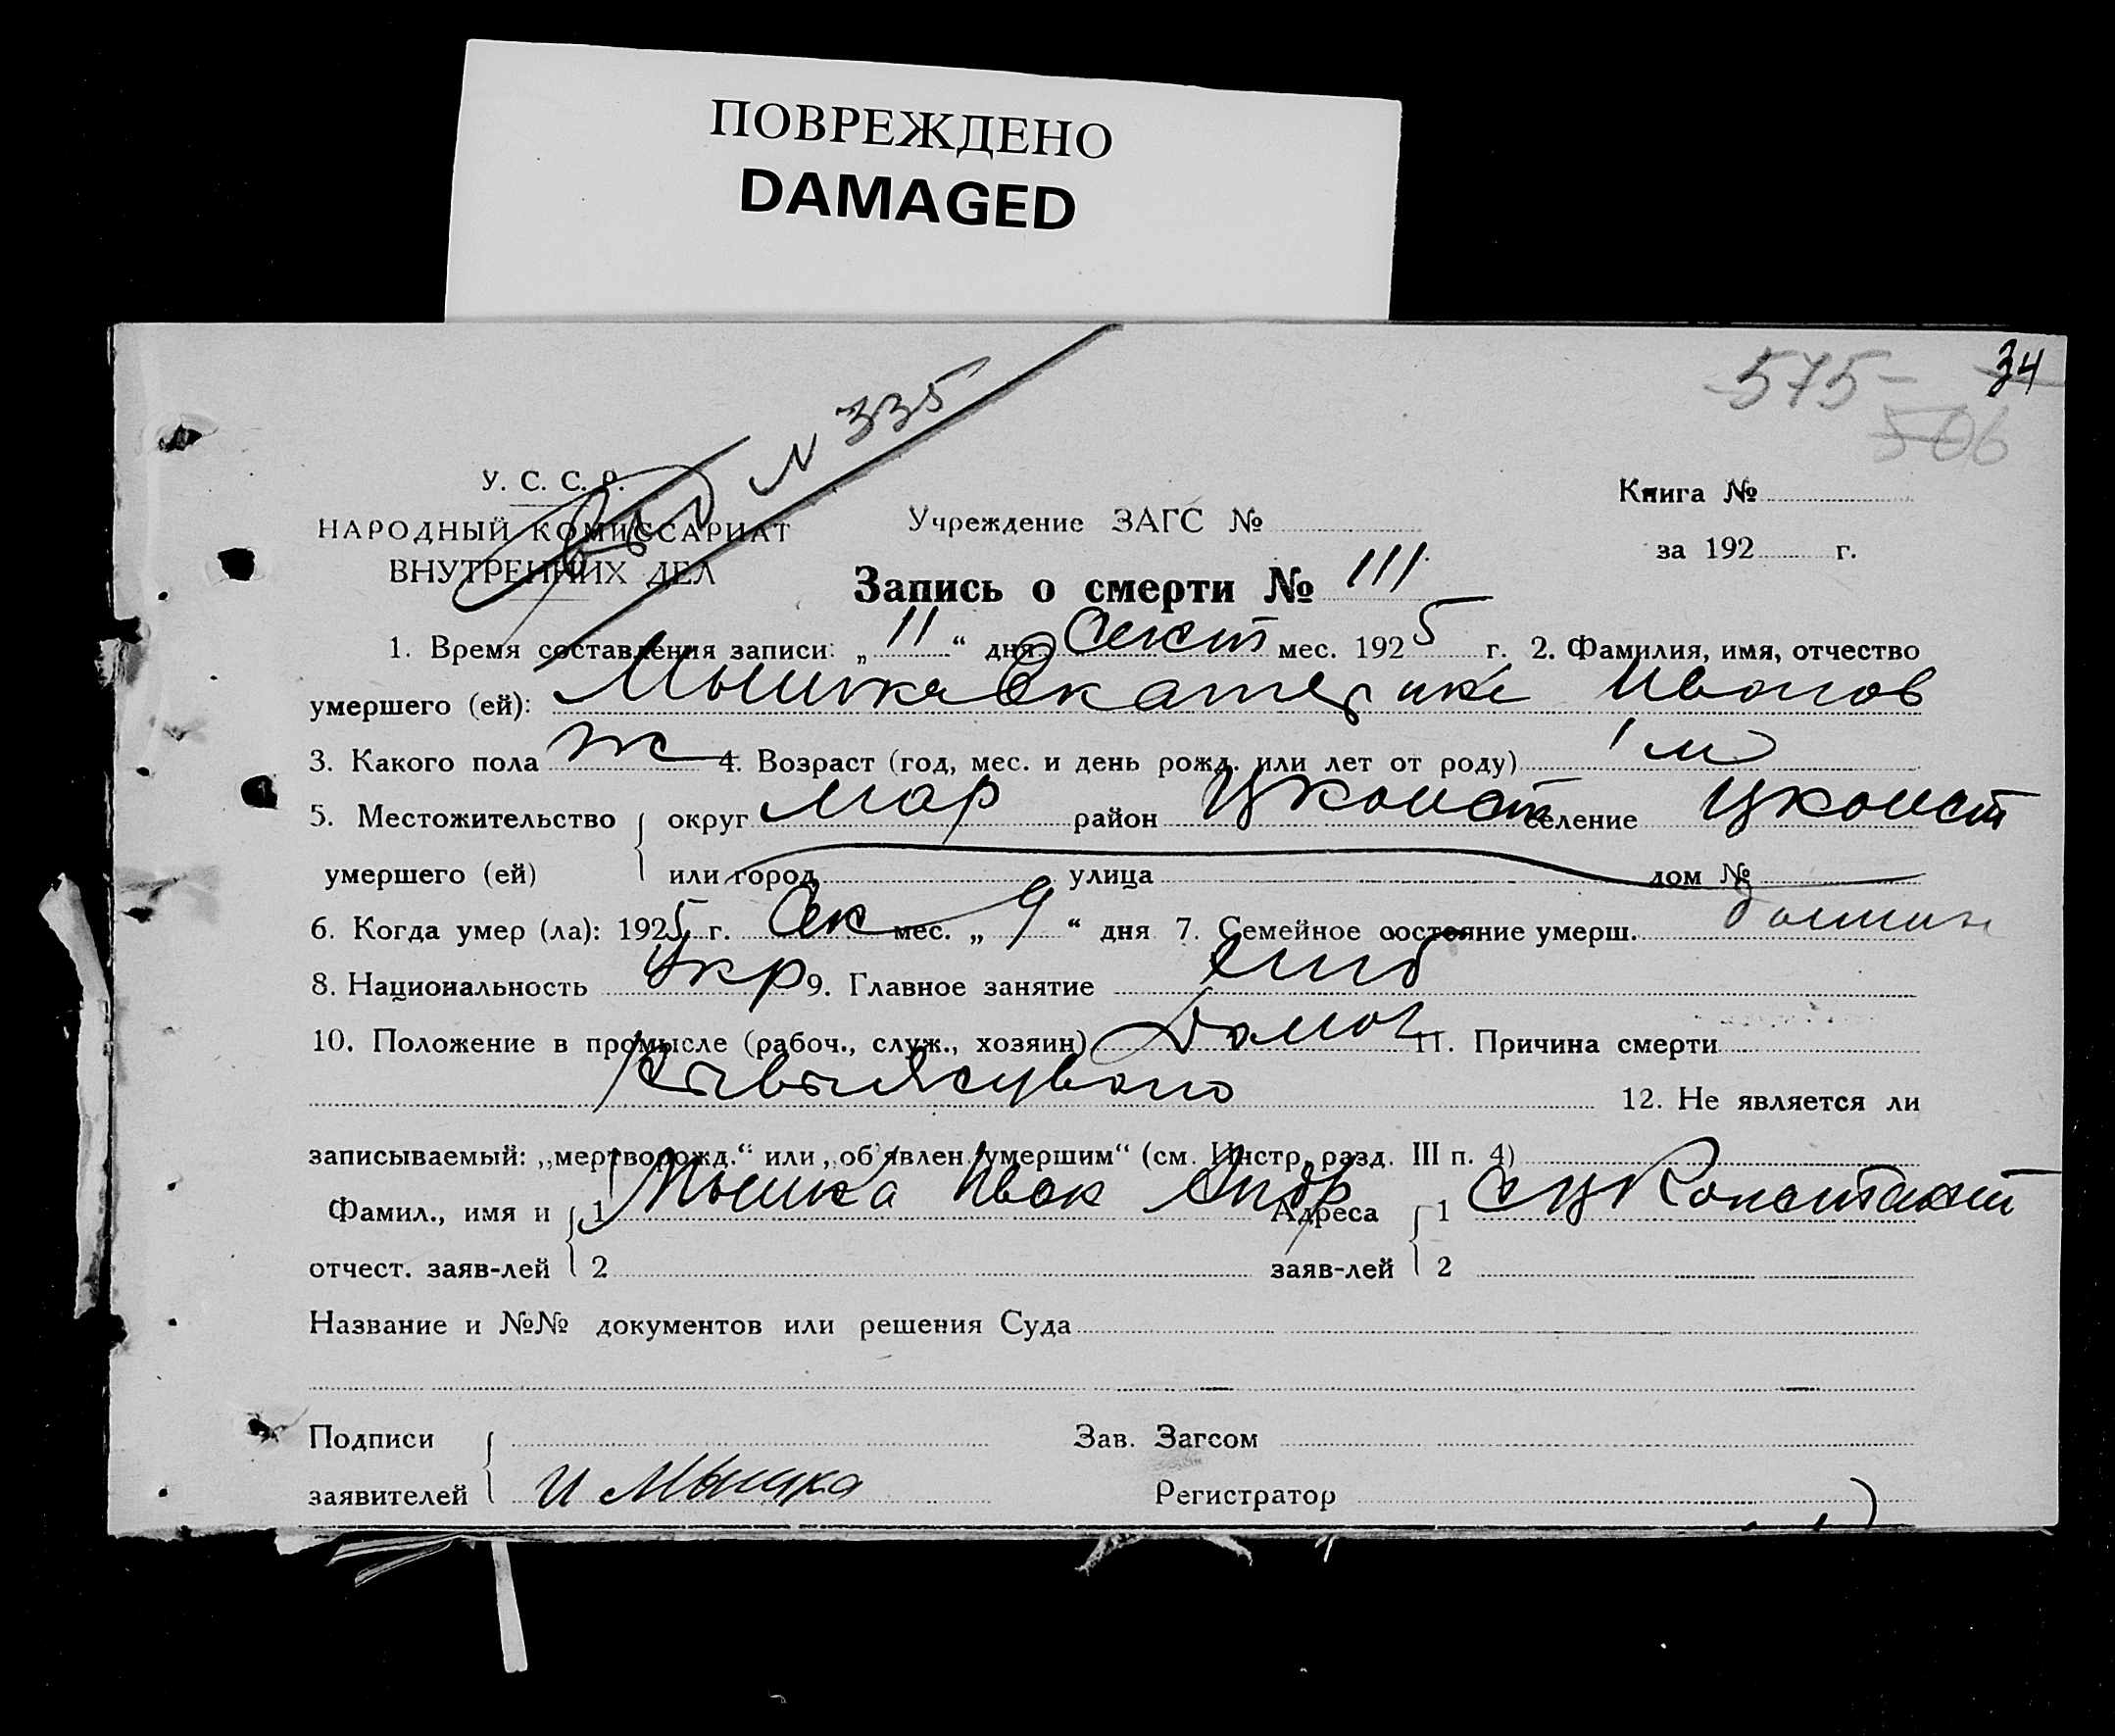 ПОВРЕЖДЕНО
DAMAGED
34
575
506
N 335
У. С. С. Р.
НАРОДНЫЙ КОМИССАРИАТ
ВНУТРЕННИХ ДЕЛ
Учреждение ЗАГС №
Книга №
за 192 г.
Запись о смерти № 111
1. Время составления записи: „ 11 “ дня Сент мес. 1925 г. 2. Фамилия, имя, отчество
умершего (ей): Мышка Екатерина Иванов
3. Какого пола ж 4. Возраст (год, мес. и день рожд. или лет от роду) 1 м
5. Местожительство округ Мар район Цконст селение Цконст
умершего (ей) или город улица дом №
6. Когда умер (ла): 1925 г. Сен мес. „ 9 “ дня 7. Семейное состояние умерш.
8. Национальность Укр 9. Главное занятие
10. Положение в промысле (рабоч., служ., хозяин) 11. Причина смерти
12. Не является ли
записываемый: „мертворожд.“ или „об'явлен. умершим“ (см. Инстр. разд. III п. 4)
Фамил., имя и 1 Мышка Иван Андр Адреса 1 с Ц Константин
отчест. заяв-лей 2 заяв-лей 2
Название и №№ документов или решения Суда
Подписи Зав. Загсом
заявителей И Мышка Регистратор